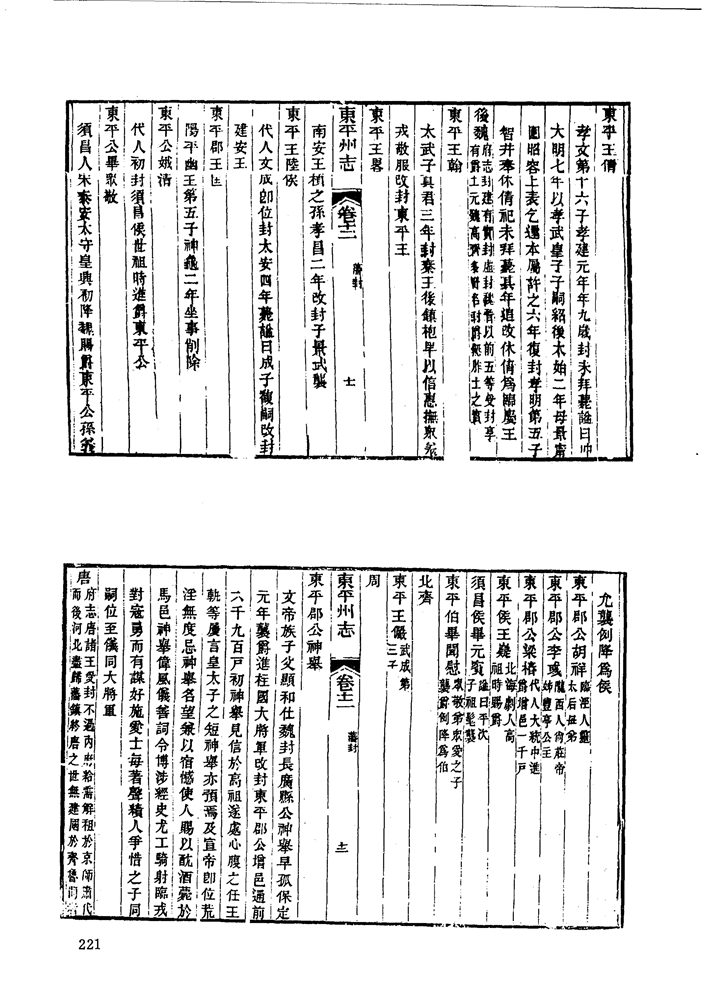 東平王倩
孝武第十六子孝建元年年九歲封未拜薨謚曰沖
大明七年以孝武皇子子嗣紹後太始二年母景甯
園昭容上表乞還本屬許之六年復封孝明第五子
智井奉休倩祀未拜薨其年追改休倩為臨慶王
後魏
東平王翰
太武子真君三年封秦王後鎮枹罕以信惠撫眾羌
戎敬服改封東平王
東平王略
東平州志 卷十二 藩封 十一
南安王楨之孫孝昌二年改封子景式襲
東平王陸俟
代人文成卽位封太安四年薨謚曰成子馛嗣改封
建安王
東平郡王匡
陽平幽王第五子神龜二年坐事削除
東平公娥清
代人初封須昌侯世祖時進爵東平公
東平公畢眾敬
須昌人宋泰安太守皇興初降魏賜爵東平公孫義
允襲例降為侯
東平郡公胡祥 臨涇人靈太后姪弟
東平郡公李彧 隴西人尚莊帝姊豐亭公主
東平郡公梁椿 代人大統中進爵增邑一千戶
東平侯王嶷 北海劇人高祖時賜爵
須昌侯畢元賓 謚曰平次子祖髦襲
東平伯畢聞慰 眾敬弟眾愛之子襲爵例降為伯
北齊
東平王儼 武成第三子
周
東平州志 卷十二 藩封 十二
東平郡公神舉
文帝族子父顯和仕魏封長廣縣公神舉早孤保定
元年襲爵進柱國大將軍改封東平郡公增邑通前
六千九百戶初神舉見信於高祖遂處心腹之任王
軌等屢言皇太子之短神舉亦預焉及宣帝卽位荒
淫無度忌神舉名望兼以宿憾使人賜以酖酒薨於
馬邑神舉偉風儀善詞令博涉經史尤工騎射臨戎
對寇勇而有謀好施愛士每著聲績人爭惜之子同
嗣位至儀同大將軍
唐 府志唐諸王受封不過內府給需解租於京師肅代
而後河北盡歸藩鎮終唐之世無建國於齊魯間者
221